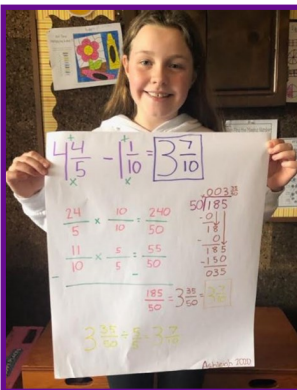 4 4/5 - 1 1/10 = 3 7/10
24/5 x 10/10 = 240/50
11/10 x 5/5 = 55/50
185/50 = 3 35/50 =
50 185
-0
18
-0
185
-150
035
3 35/50 ÷ 5/5 = 3 7/10
2020